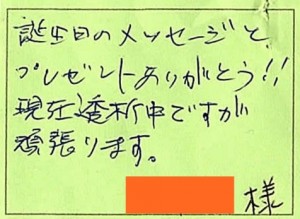 誕生日のメッセージと
プレゼントありがとう!!
現在透析中ですが
頑張ります。
様